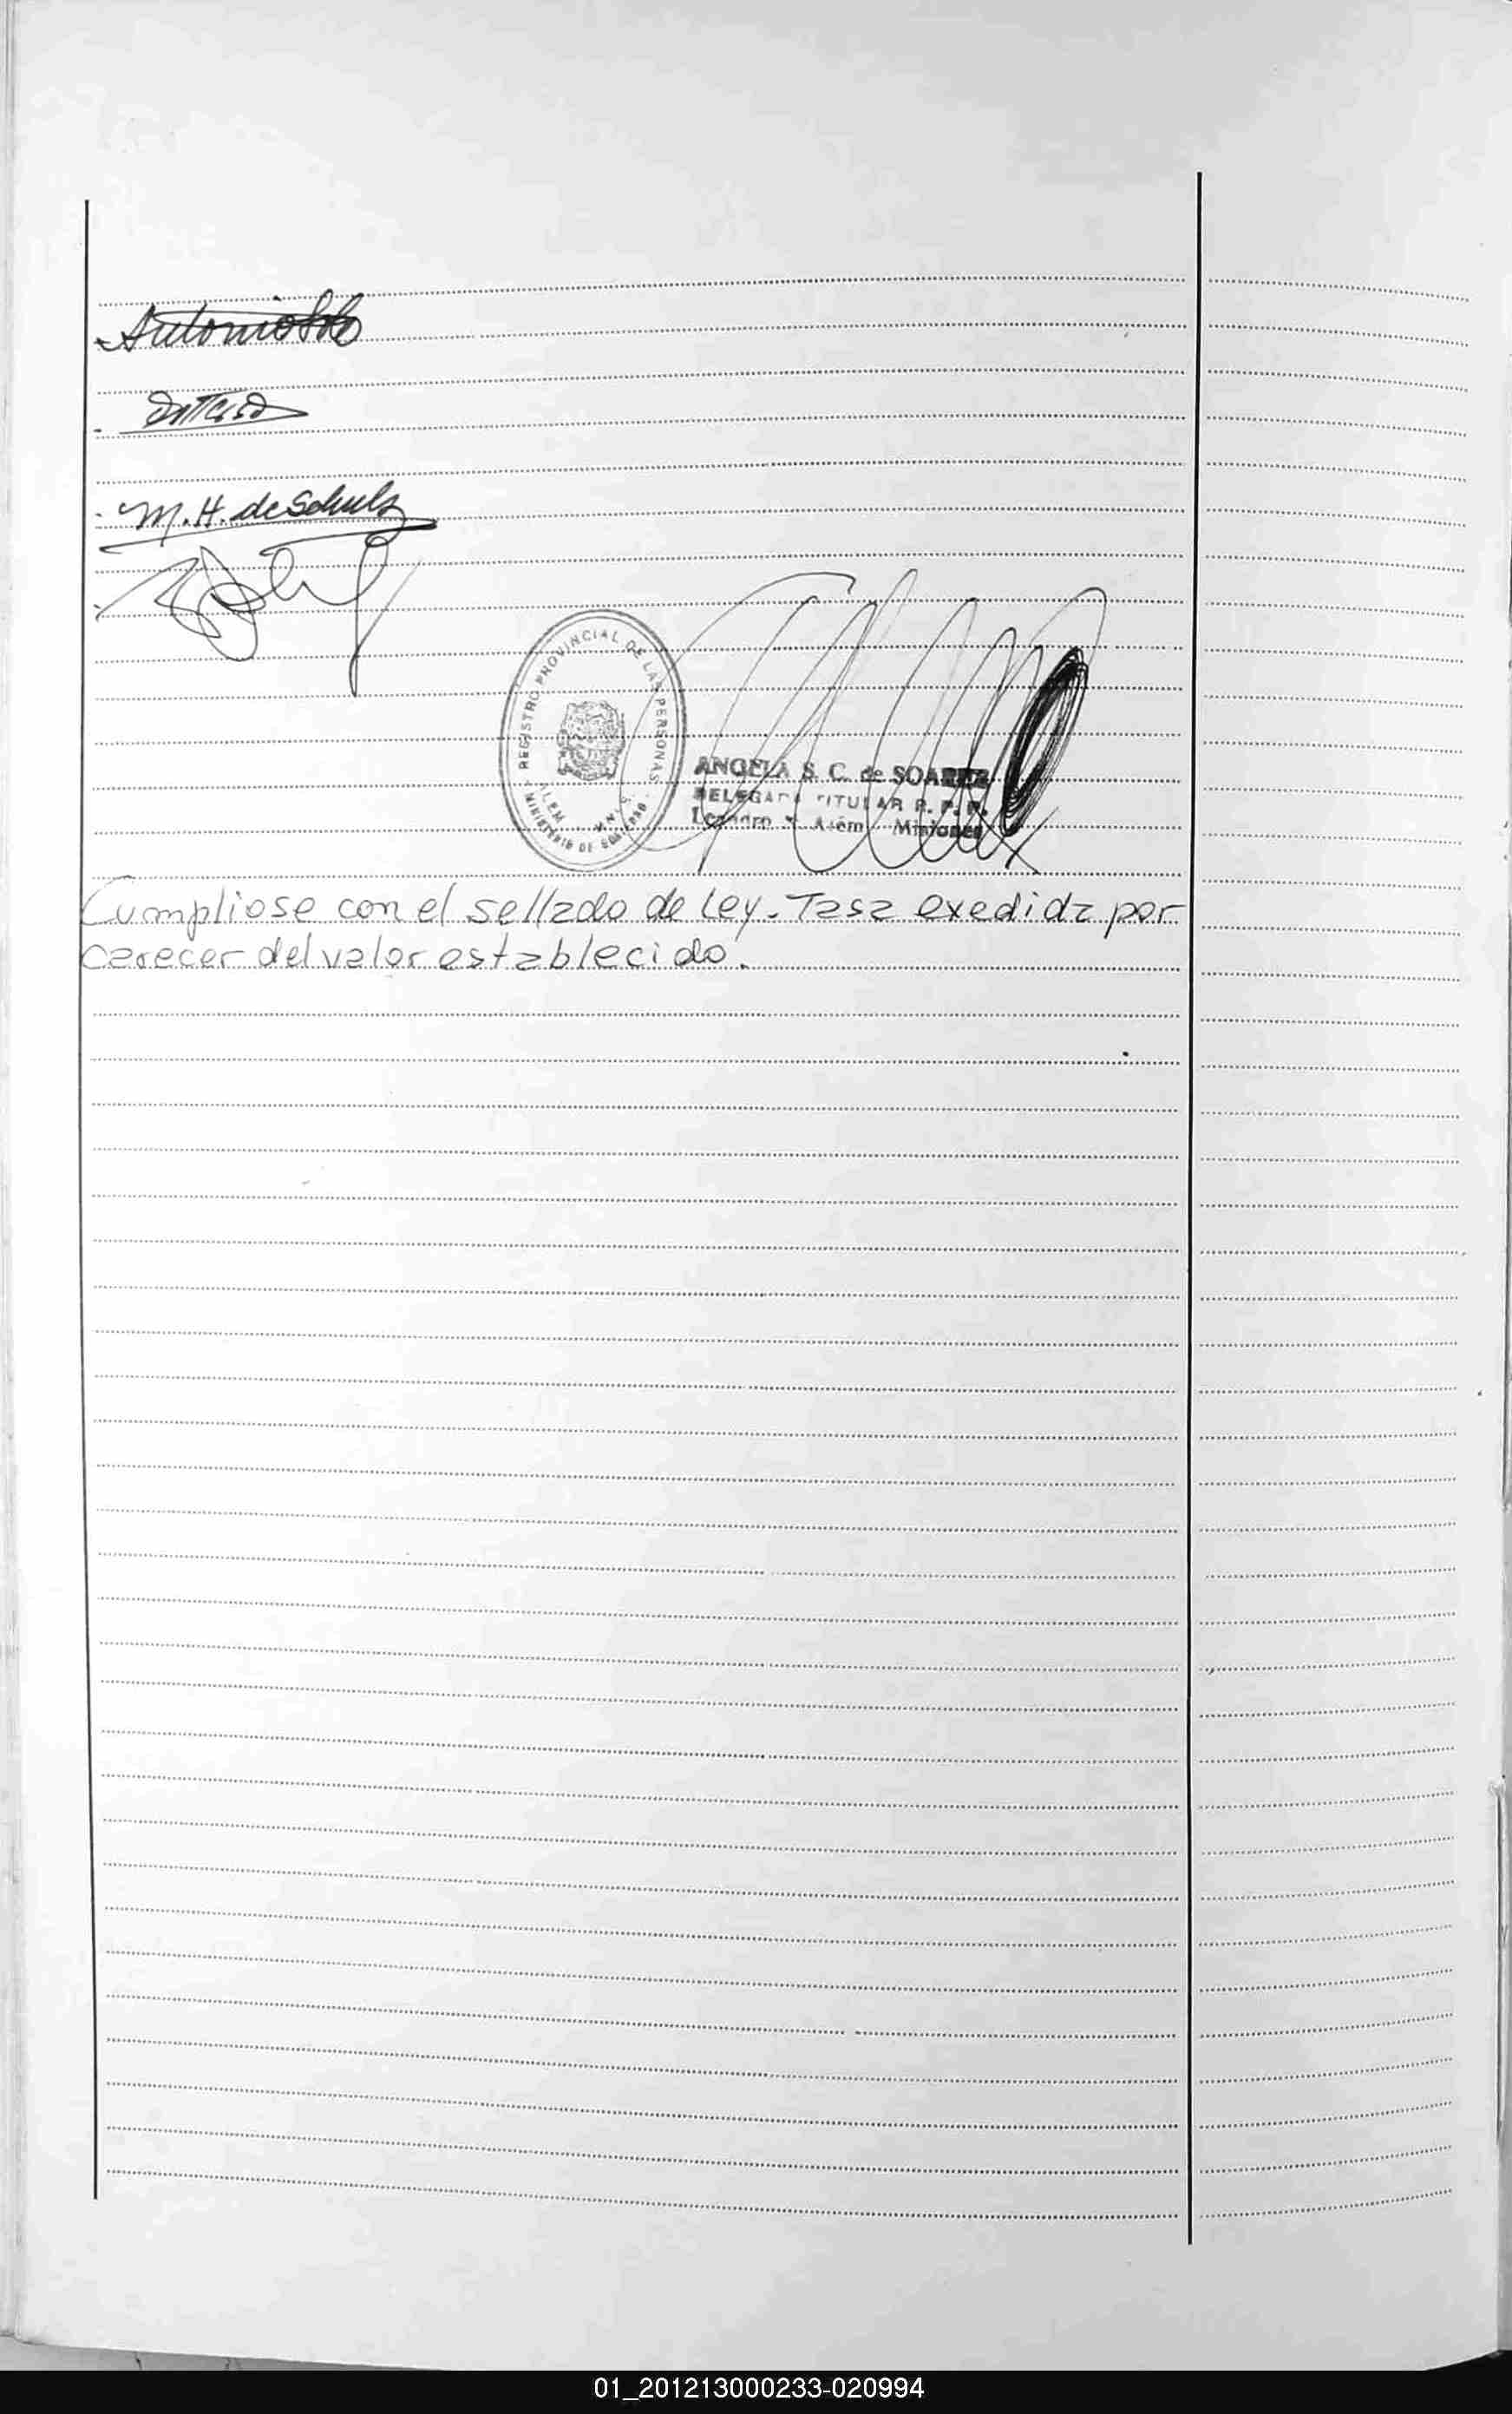 M. H. de Schulz
REGISTRO PROVINCIAL DE LAS PERSONAS
MINISTERIO DE GOBIERNO
ANGELA S. C. de SOAREZ
DELEGADA TITULAR R. P. P.
Leandro N. Alem Misiones
Cumpliose con el sellado de Ley. Tasa exedida por
carecer del valor establecido.
01_201213000233-020994